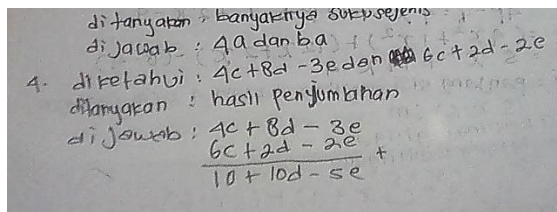 ditanyakan : banyaknya suku sejenis
dijawab : 4a dan ba
4. diketahui : 4c + 8d - 3e dan 6c + 2d - 2e
ditanyakan : hasil penjumlahan
dijawab : 4c + 8d - 3e
6c + 2d - 2e +
10 + 10d - 5e